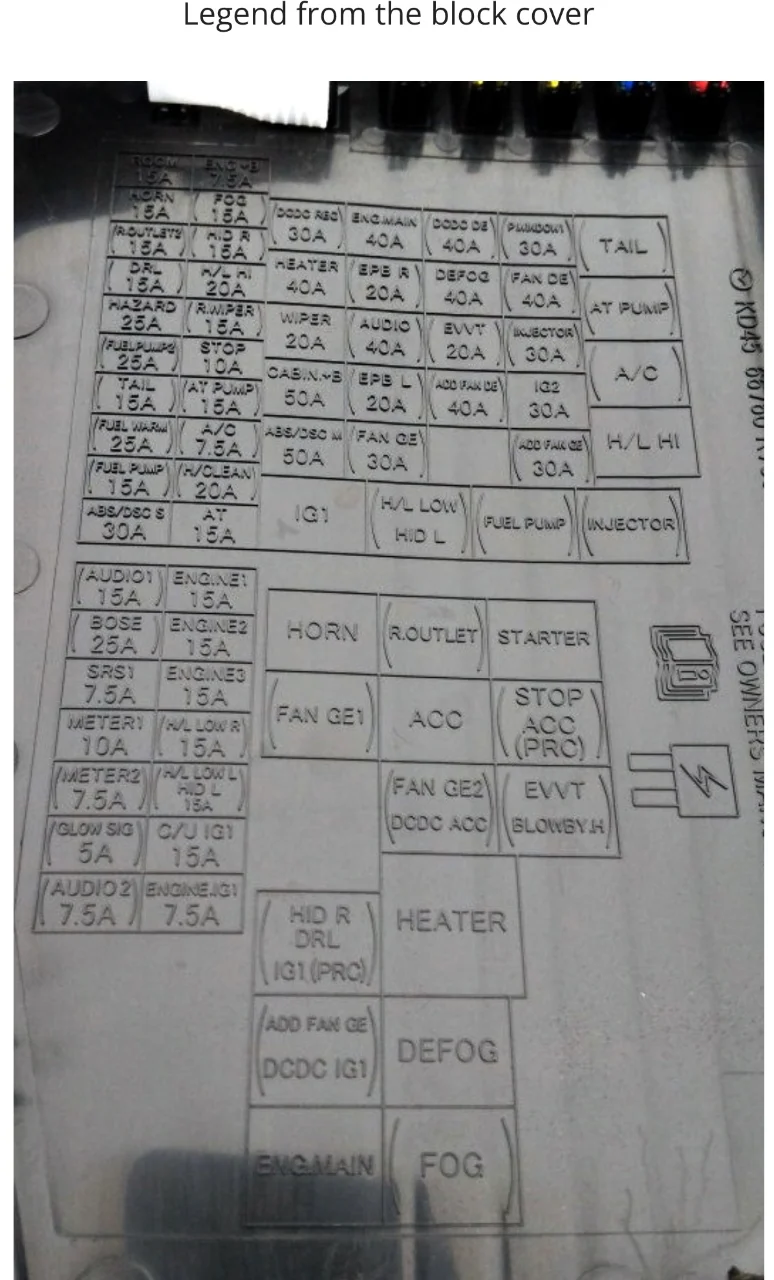 Legend from the block cover
ROOM 15A
ENG+B 7.5A
HORN 15A
FOG 15A
(R.OUTLET2) 15A
HID R 15A
DRL 15A
H/L HI 20A
HAZARD 25A
(R.WIPER) 15A
(FUELPUMP2) 25A
STOP 10A
TAIL 15A
(AT PUMP) 15A
(FUEL WARM) 25A
A/C 7.5A
(FUEL PUMP) 15A
(H/CLEAN) 20A
ABS/DSC S 30A
AT 15A
(DCDC REG) 30A
ENG.MAIN 40A
(DCDC DE) 40A
(P.WINDOW1) 30A
(TAIL)
HEATER 40A
(EPB R) 20A
DEFOG 40A
(FAN DE) 40A
(AT PUMP)
WIPER 20A
(AUDIO) 40A
(EVVT) 20A
(INJECTOR) 30A
(A/C)
CABIN.+B 50A
(EPB L) 20A
(ADD FAN DE) 40A
IG2 30A
(H/L HI)
ABS/DSC M 50A
(FAN GE) 30A
(ADD FAN GE) 30A
IG1
(H/L LOW
HID L)
(FUEL PUMP)
(INJECTOR)
KD45
SEE OWNERS
(AUDIO1) 15A
ENGINE1 15A
(BOSE) 25A
ENGINE2 15A
SRS1 7.5A
ENGINE3 15A
METER1 10A
(H/L LOW R) 15A
(METER2) 7.5A
(H/L LOW L HID L) 15A
(GLOW SIG) 5A
C/U IG1 15A
(AUDIO2) 7.5A
ENGINE.IG1 7.5A
HORN
(R.OUTLET)
STARTER
(FAN GE1)
ACC
(STOP
ACC
(PRC))
(FAN GE2
DCDC ACC)
(EVVT
BLOWBY.H)
(HID R
DRL
IG1(PRC))
HEATER
(ADD FAN GE
DCDC IG1)
DEFOG
ENG.MAIN
(FOG)